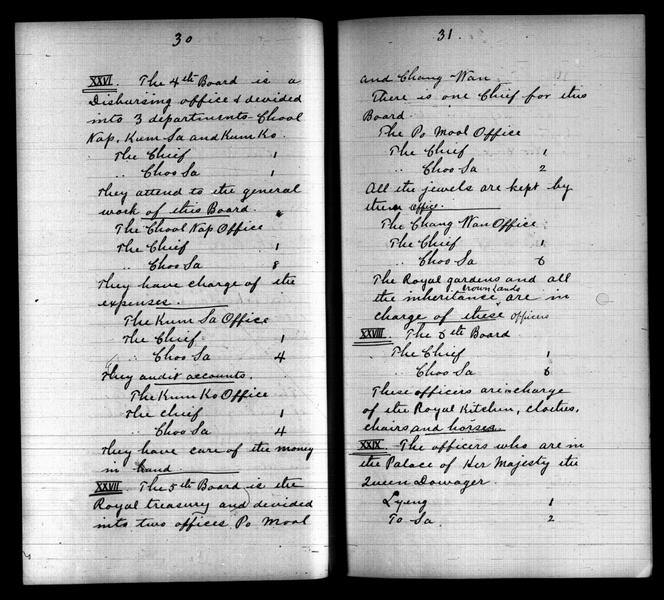 30
XXVI. The 4th Board is a
Disbursing office & devided
into 3 departments Chool
Nap, Kum Sa and Kum Ko.
The Chief 1
" Choo Sa 1
They attend to the general
work of this Board.
The Chool Nap Office
The Chief 1
" Choo Sa 8
They have charge of the
expenses.
The Kum Sa Office
The Chief 1
" Choo Sa 4
They audit accounts.
The Kum Ko Office
The Chief 1
" Choo Sa 4
They have care of the money
in hand.
XXVII. The 5th Board is the
Royal treasury and devided
into two offices Po Mool
31.
and Chang Wan
There is one Chief for this
Board.
The Po Mool Office
The Chief 1
" Choo Sa 2
All the jewels are kept by
them office.
The Chang Wan Office
The Chief 1
" Choo Sa 6
The Royal gardens and all
the inheritance crown lands are in
charge of these officers
XXVIII. The 6th Board
The Chief 1
" Choo Sa 6
These officers are in charge
of the Royal Kitchen, clothes,
chairs and horses.
XXIX. The officers who are in
the Palace of Her Majesty the
Queen Dowager.
Lyeng 1
To Sa. 2